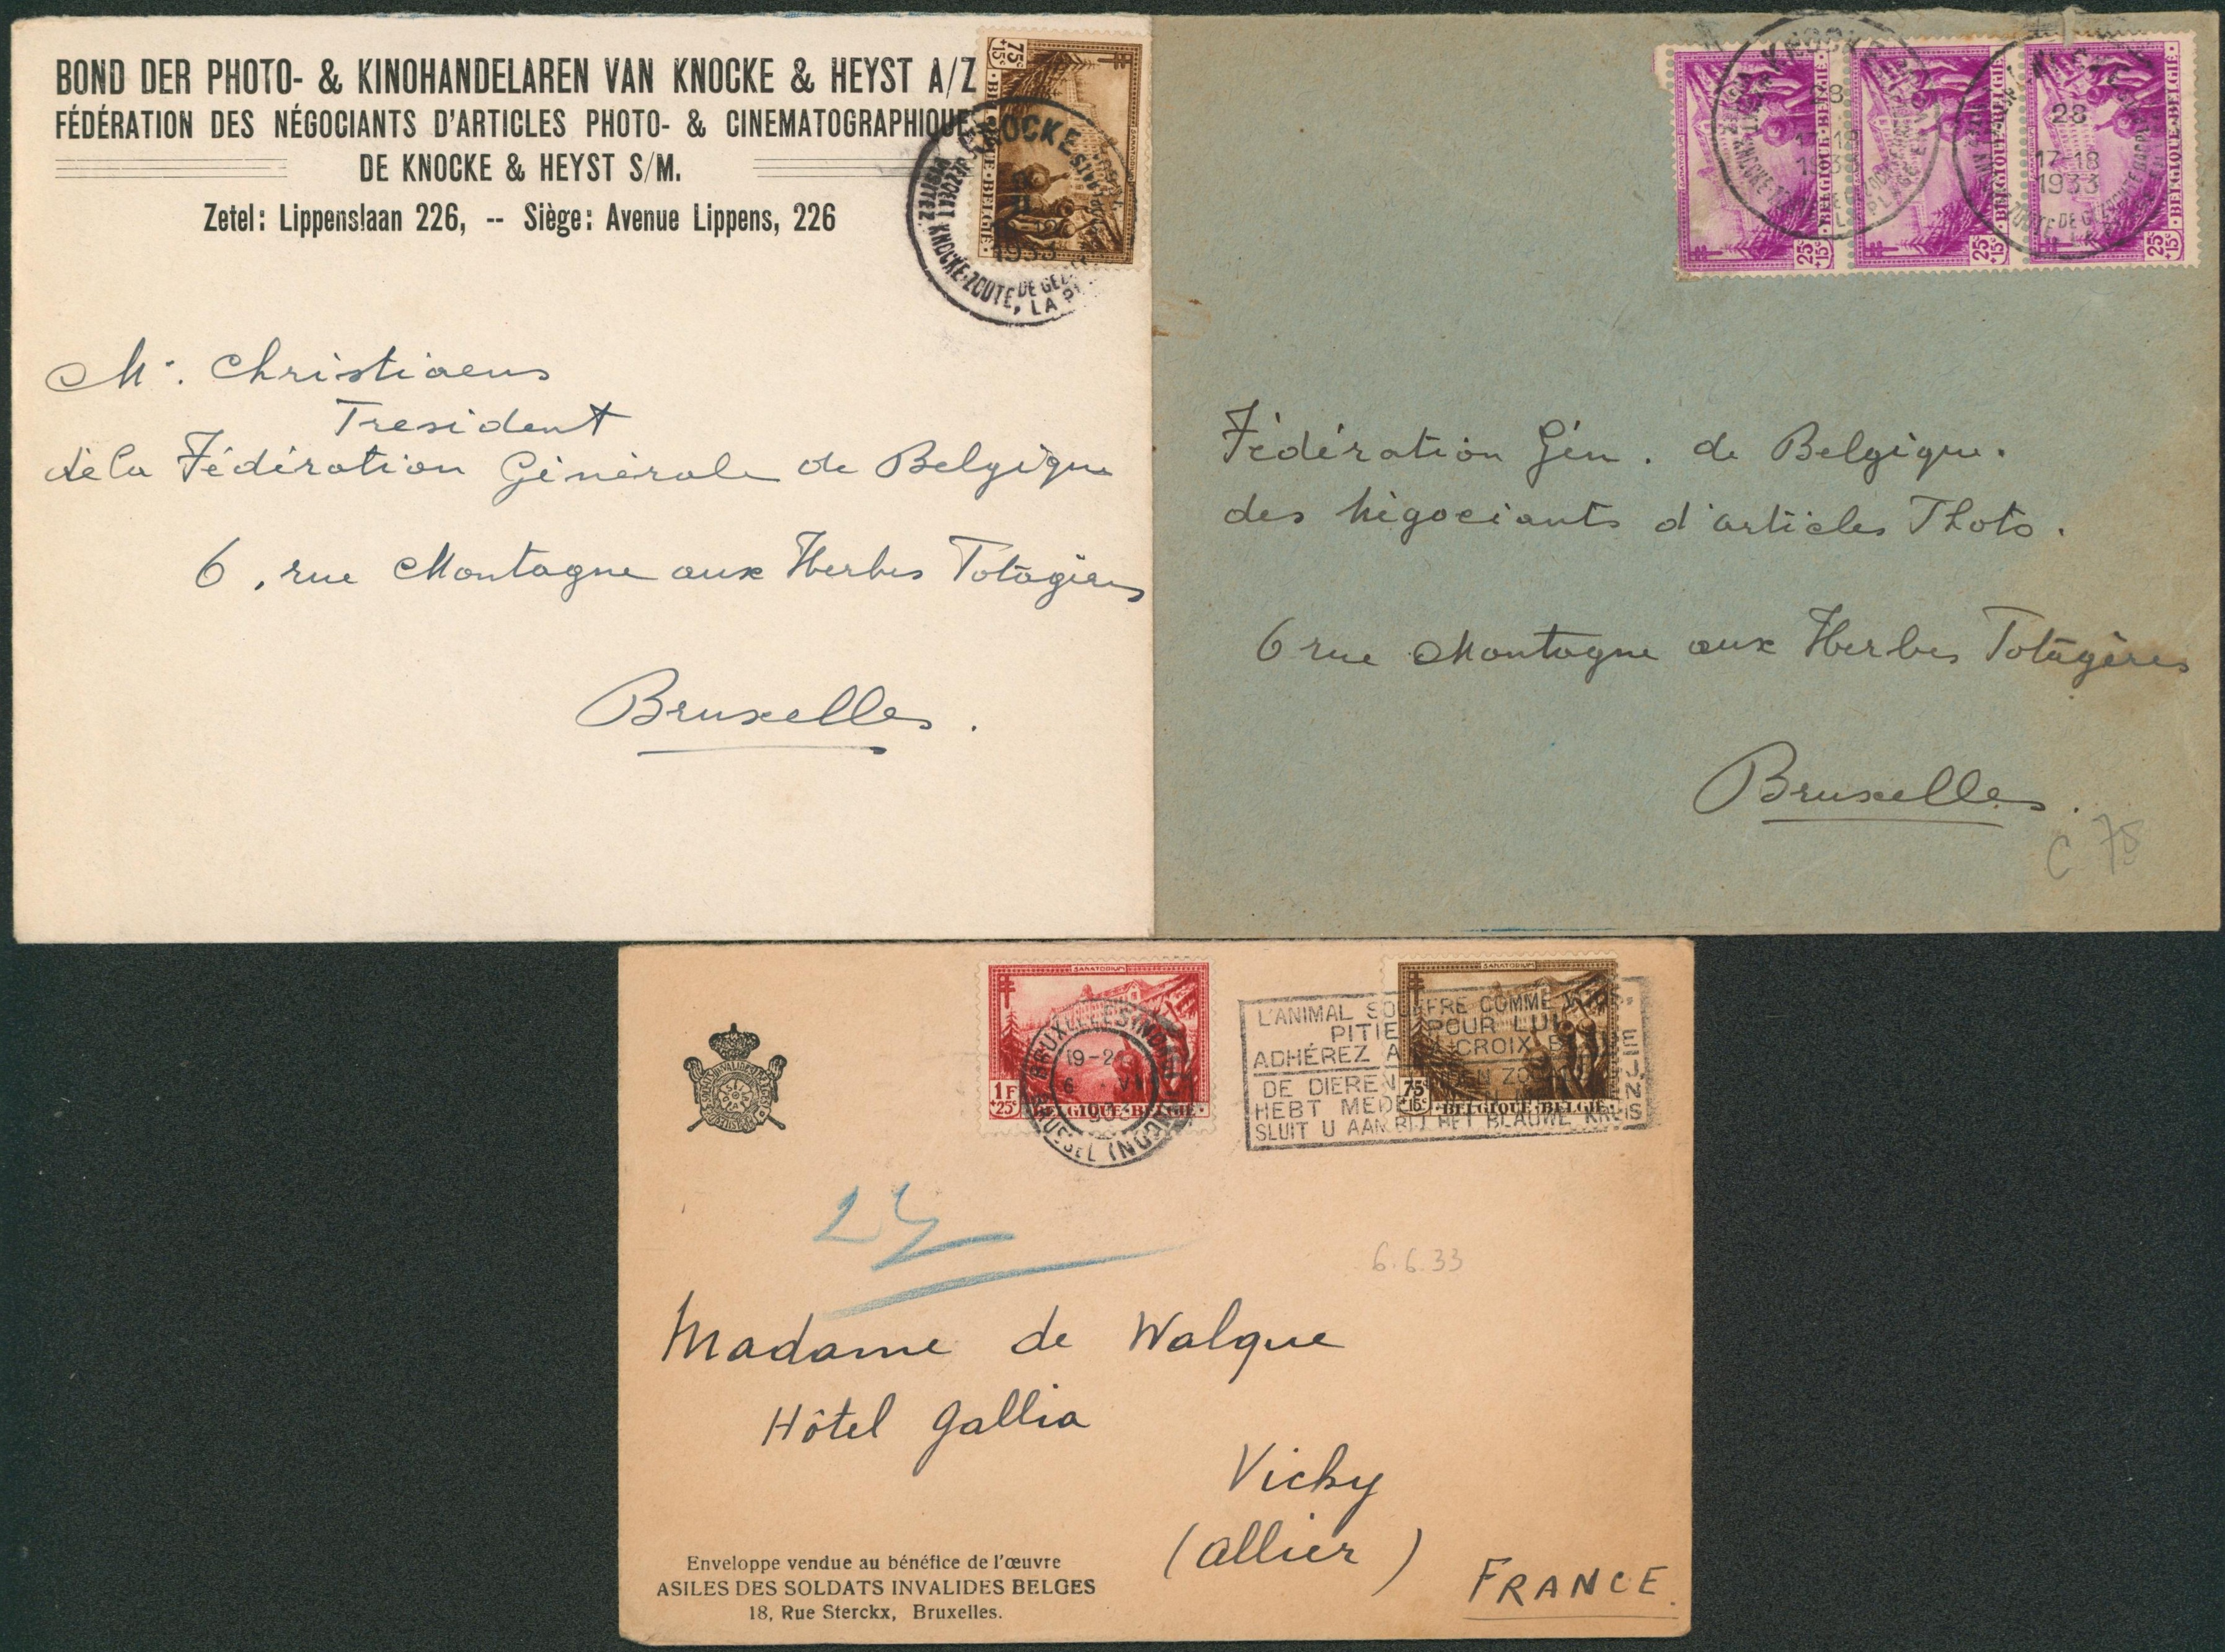 BOND DER PHOTO- & KINOHANDELAREN VAN KNOCKE & HEYST A/Z
FÉDÉRATION DES NÉGOCIANTS D'ARTICLES PHOTO- & CINEMATOGRAPHIQUE
DE KNOCKE & HEYST S/M.
Zetel: Lippenslaan 226, -- Siège: Avenue Lippens, 226
75c +15c
BELGIQUE·BELGIE
KNOCKE
1933
KNOCKE-ZOUTE, LA
Mr. Christiaens
President
de la Fédération Générale de Belgique
6, rue Montagne aux Herbes Potagères
Bruxelles.
BELGIQUE·BELGIE
25c +15c
BELGIQUE·BELGIE
25c +15c
BELGIQUE·BELGIE
25c +15c
KNOCKE
28
17-18
1933
28
17-18
1933
Fédération Gén. de Belgique.
des négociants d'articles Photo.
6 rue Montagne aux Herbes Potagères
Bruxelles.
C 75
SANATORIUM
1F +25c
BELGIQUE·BELGIE
BRUXELLES (NORD)
BRUSSEL (NOORD)
SANATORIUM
75c +15c
BELGIQUE·BELGIE
L'ANIMAL SOUFFRE COMME
PITIE POUR LUI
ADHÉREZ A CROIX
DE DIEREN
HEBT
SLUIT U AAN BIJ HET BLAUWE KRUIS
6.6.33
Madame de Walque
Hôtel Gallia
Vichy
(Allier)
FRANCE.
Enveloppe vendue au bénéfice de l'œuvre
ASILES DES SOLDATS INVALIDES BELGES
18, Rue Sterckx, Bruxelles.